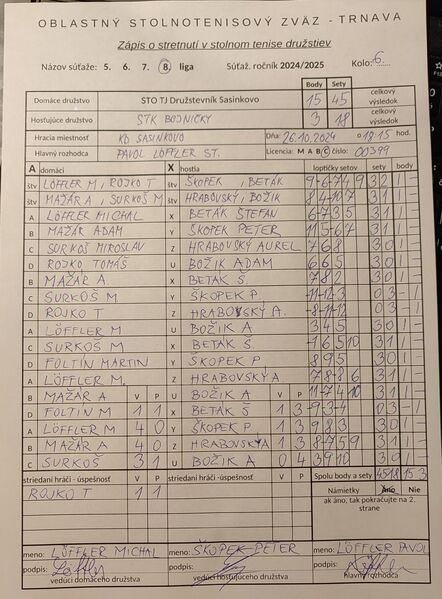 OBLASTNÝ STOLNOTENISOVÝ ZVÄZ - TRNAVA
Zápis o stretnutí v stolnom tenise družstiev
Názov súťaže: 5. 6. 7. 8. liga Súťaž. ročník 2024/2025 Kolo: 6.
Body Sety
Domáce družstvo STO TJ Družstevník Sasinkovo 15 45 celkový výsledok
Hosťujúce družstvo STK BOJNIČKY 3 18 celkový výsledok
Hracia miestnosť KD SASINKOVO Dňa: 26.10.2024 o 17:15 hod.
Hlavný rozhodca PAVOL LÖFFLER ST. Licencia: M A B C číslo: 00399
A domáci X hostia loptičky setov sety body
štv LÖFFLER M, ROJKO T štv ŠKOPEK, BETÁK 9 -6 -7 4 9 3 2 1 -
štv MAŽÁR A, SURKOŠ M štv HRABOVSKÝ, BOŽIK 8 4 -10 7 3 1 1 -
A LÖFFLER MICHAL X BETÁK ŠTEFAN 6 -7 3 5 3 1 1 -
B MAŽÁR ADAM Y ŠKOPEK PETER 11 5 -6 7 3 1 1 -
C SURKOŠ MIROSLAV Z HRABOVSKÝ AUREL 7 6 8 3 0 1 -
D ROJKO TOMÁŠ U BOŽIK ADAM 6 6 5 3 0 1 -
B MAŽÁR A. X BETÁK Š. 7 8 2 3 0 1 -
C SURKOŠ M Y ŠKOPEK P. -11 -12 -3 0 3 - 1
D ROJKO T Z HRABOVSKÝ A. -8 -11 -12 0 3 - 1
A LÖFFLER M U BOŽIK A 3 4 5 3 0 1 -
C SURKOŠ M X BETÁK Š. -1 6 5 10 3 1 1 -
D FOLTÍN MARTIN Y ŠKOPEK P. 8 9 5 3 0 1 -
A LÖFFLER M. Z HRABOVSKÝ A 7 8 -8 6 3 1 1 -
B MAŽÁR A V P U BOŽIK A V P 11 -7 4 10 3 1 1 -
D FOLTÍN M 1 1 X BETÁK Š 1 3 -9 -3 -4 0 3 - 1
A LÖFFLER M 4 0 Y ŠKOPEK P. 1 3 9 8 3 3 0 1 -
B MAŽÁR A 4 0 Z HRABOVSKÝ A 1 3 8 -7 5 9 3 1 1 -
C SURKOŠ 3 1 U BOŽIK A 0 4 3 9 10 3 0 1 -
striedaní hráči - úspešnosť V P striedaní hráči - úspešnosť V P Spolu body a sety 45 18 15 3
ROJKO T 1 1 Námietky Áno Nie
ak áno, tak pokračujte na 2. strane
meno: LÖFFLER MICHAL meno: ŠKOPEK PETER meno: LÖFFLER PAVOL
podpis: podpis: podpis:
vedúci domáceho družstva vedúci hosťujúceho družstva hlavný rozhodca